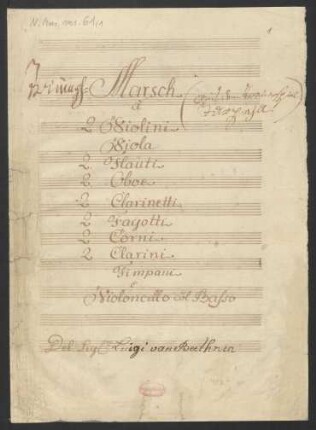 N. Mus. ms. 61,1
Triumph= Marsch
à
2 Violini
Viola
2 Flauti
2 Oboe
2 Clarinetti
2 Fagotti
2 Corni
2 Clarini
Timpani
e
Violoncello col Basso
Del Sigl: Luigi van Beethven